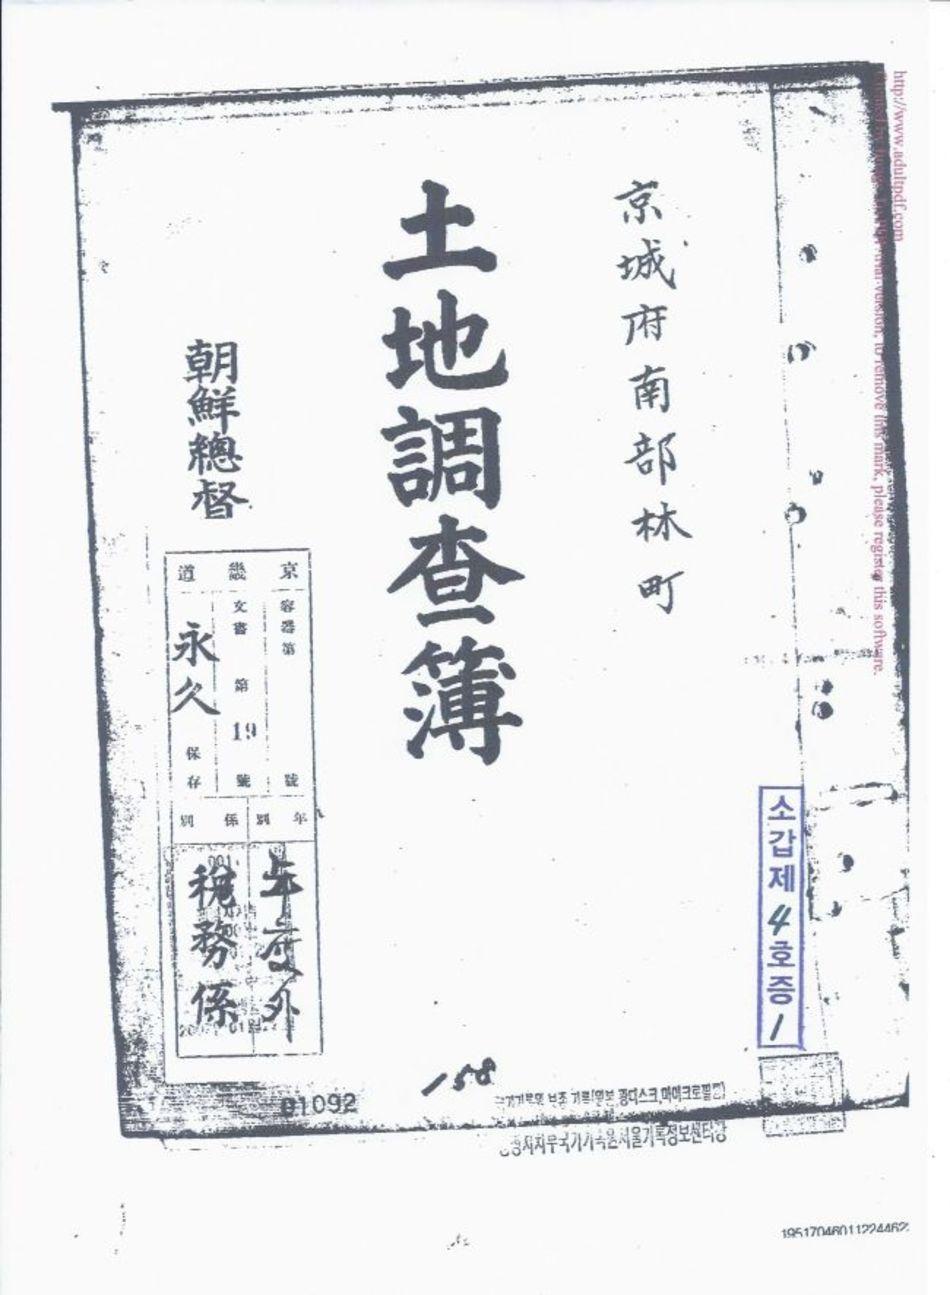 京城府南部林町
土地調査簿
朝鮮總督
京畿道
容器第 號
文書第19號
永久保存
年別
係別
年度外
稅務係
소갑제4호증1
158
01092
국가기록원 보존 기록(원본 광디스크,마이크로필름)
19517046011224462
http://www.adultpdf.com
trial version, to remove this mark, please register this software.